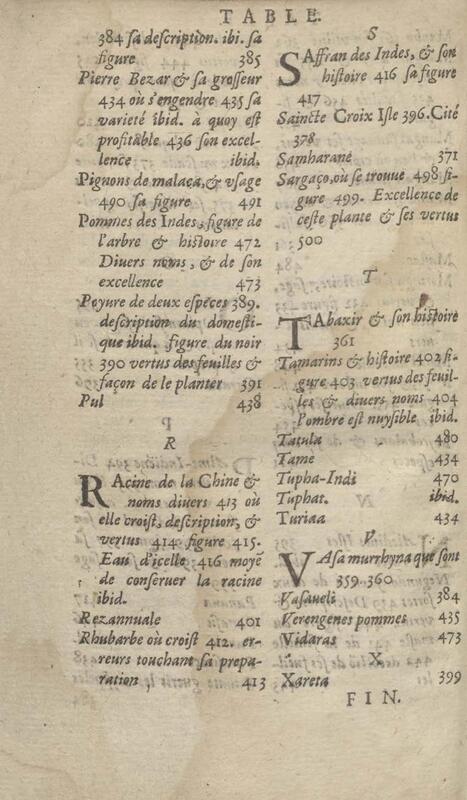 TABLE.
384 sa description. ibi. sa
figure 385
Pierre Bezar & sa grosseur
434 où s'engendre 435 sa
varieté ibid. à quoy est
profitable 436 son excel-
lence ibid.
Pignons de malaca, & vsage
490 sa figure 491
Pommes des Indes, figure de
l'arbre & histoire 472
Diuers noms, & de son
excellence 473
Poyure de deux especes 389.
description du domesti-
que ibid. figure du noir
390 vertus des feuilles &
façon de le planter 391
Pul 438
R
RAcine de la Chine &
noms diuers 413 où
elle croist, description, &
vertus 414 figure 415.
Eau d'icelle 416 moyẽ
de conseruer la racine
ibid.
Rezannuale 401
Rhubarbe où croist 412. er-
reurs touchant sa prepa-
ration, 413
S
SAffran des Indes, & son
histoire 416 sa figure
417
Saincte Croix Isle 396. Cité
378
Samharané 371
Sargaço, où se trouue 498 fi-
gure 499. Excellence de
ceste plante & ses vertus
500
T
TAbaxir & son histoire
361
Tamarins & histoire 402 fi-
gure 403 vertus des feuil-
les & diuers noms 404
l'ombre est nuysible ibid.
Tatula 480
Tame 434
Tupha-Indi 470
Tuphat. ibid.
Turiaa 434
V
VAsa murrhyna que sont
359. 360
Vasaueli 384
Verengenes pommes 435
Vidaras 473
X
Xareta 399
FIN.